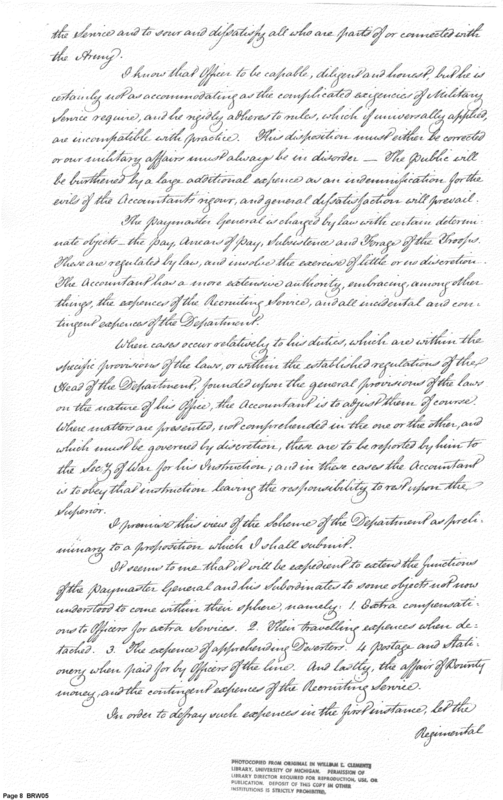 the Service and to sour and dissatisfy all who are parts of or connected with
the Army.
I know that Officer to be capable, diligent and honest, but he is
certainly not as accommodating as the complicated exigencies of Military
Service require, and he rigidly adheres to rules, which if universally applied,
are incompatible with practice. This disposition must either be corrected
or our military affairs must always be in disorder — The public will
be burthened by a large additional expence as an indemnification for the
evils of the Accountants rigour, and general dissatisfaction will prevail.
The paymaster General is charged by law with certain determi-
nate objects — the pay, Arrears of pay, Subsistence and Forage of the Troops.
These are regulated by law, and involve the exercise of little or no discretion.
The Accountant has a more extensive authority, embracing, among other
things, the expences of the Recruiting Service, and all incidental and con-
tingent expences of the Department.
When cases occur relatively to his duties, which are within the
specific provisions of the laws, or within the established regulations of the
Head of the Department, founded upon the general provisions of the laws
on the nature of his Office, the Accountant is to adjust them of course.
Where matters are presented, not comprehended in the one or the other, and
which must be governed by discretion, these are to be reported by him to
the Secy. of War for his Instruction; and in these cases the Accountant
is to obey that instruction leaving the responsibility to rest upon the
Superior.
I premise this view of the Scheme of the Department as preli-
minary to a proposition which I shall submit.
It seems to me that it will be expedient to extend the functions
of the Paymaster General and his Subordinates to some objects not now
understood to come within their sphere, namely: 1. Extra compensati-
ons to Officers for extra Services. 2. Their travelling expences when de-
tached. 3. The expence of apprehending Deserters. 4 postage and Stati-
onery when paid for by Officers of the line. And lastly, the affair of Bounty
money, and the contingent expences of the Recruiting Service.
In order to defray such expences in the first instance, let the
Regimental
PHOTOCOPIED FROM ORIGINAL IN WILLIAM L. CLEMENTS
LIBRARY, UNIVERSITY OF MICHIGAN. PERMISSION OF
LIBRARY DIRECTOR REQUIRED FOR REPRODUCTION, USE, OR
PUBLICATION. DEPOSIT OF THIS COPY IN OTHER
INSTITUTIONS IS STRICTLY PROHIBITED.
Page 8 BRW05